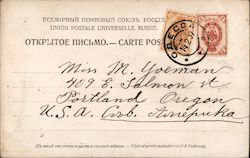 ВСЕМІРНЫЙ ПОЧТОВЫЙ СОЮЗЪ. РОССІЯ
UNION POSTALE UNIVERSELLE. RUSSIE.
ОТКРЫТОЕ ПИСЬМО. — CARTE POS
ОДЕССА
Miss M. Yoeman
409 E. Salmon st
Portland Oregon
U.S.A. Сѣв. Америка
На этой сторонѣ пишется только адресъ. — Côté réservé exclusivement à l'adresse.